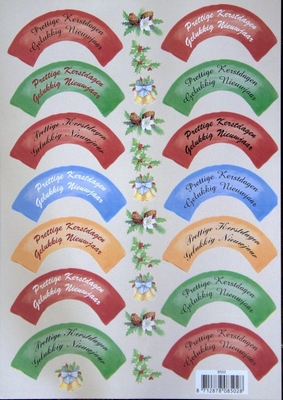 Prettige Kerstdagen
Gelukkig Nieuwjaar
Prettige Kerstdagen
Gelukkig Nieuwjaar
Prettige Kerstdagen
Gelukkig Nieuwjaar
Prettige Kerstdagen
Gelukkig Nieuwjaar
Prettige Kerstdagen
Gelukkig Nieuwjaar
Prettige Kerstdagen
Gelukkig Nieuwjaar
Prettige Kerstdagen
Gelukkig Nieuwjaar
Prettige Kerstdagen
Gelukkig Nieuwjaar
Prettige Kerstdagen
Gelukkig Nieuwjaar
Prettige Kerstdagen
Gelukkig Nieuwjaar
Prettige Kerstdagen
Gelukkig Nieuwjaar
Prettige Kerstdagen
Gelukkig Nieuwjaar
Prettige Kerstdagen
Gelukkig Nieuwjaar
Prettige Kerstdagen
Gelukkig Nieuwjaar
8 712878 085028